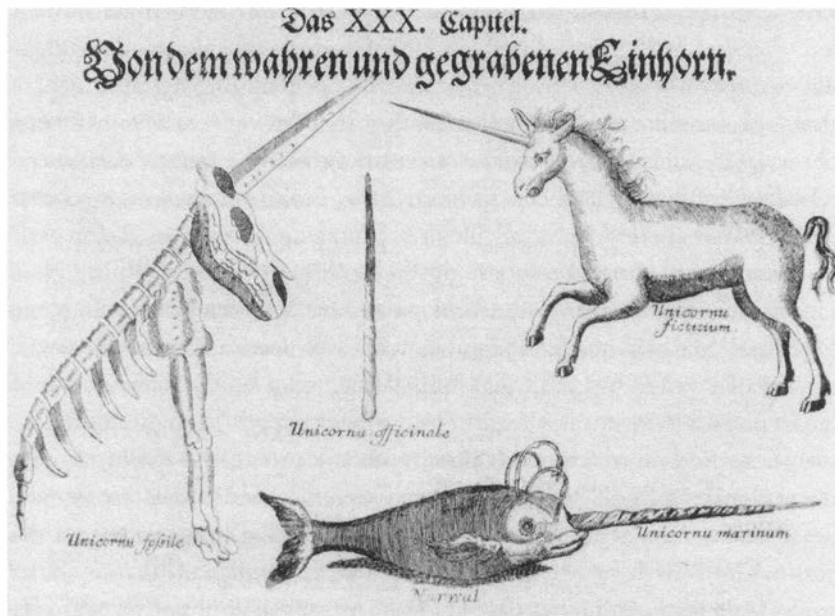 Das XXX. Capitel.
Von dem wahren und gegrabenen Einhorn.
Unicornu
ficticium.
Unicornu officinale
Unicornu fossile
Unicornu marinum
Narwal